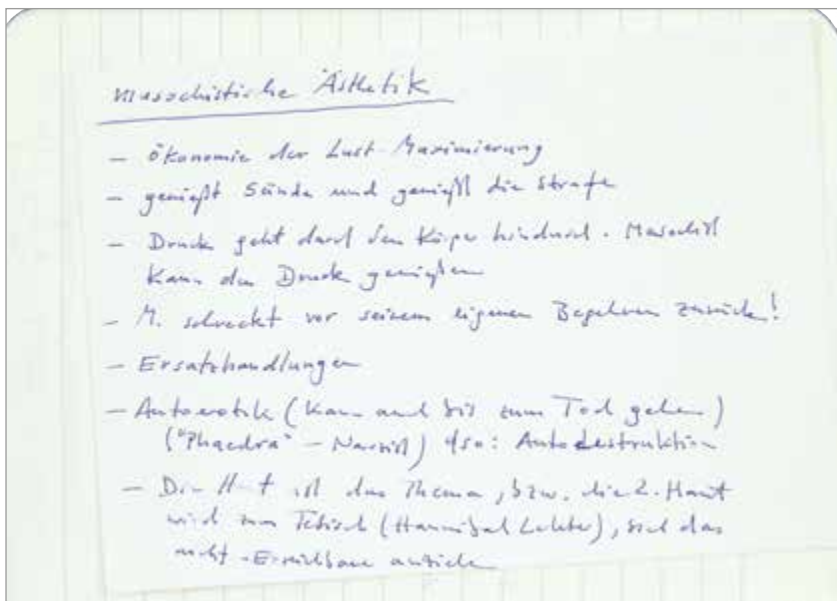 Masochistische Ästhetik
– Ökonomie der Lust-Maximierung
– genießt Sünde und genießt die Strafe
– Druck geht durch den Körper hindurch. Masochist
kann den Druck genießen
– M. schreckt vor seinem eigenen Begehren zurück!
– Ersatzhandlungen
– Autoerotik (kann auch bis zum Tod gehen)
("Phaedra" – Narziß) also: Autodestruktion
– Die Haut ist das Thema, bzw. die 2. Haut
wird zum Fetisch (Hannibal Lekter), sich das
nicht-Erreichbare anziehen